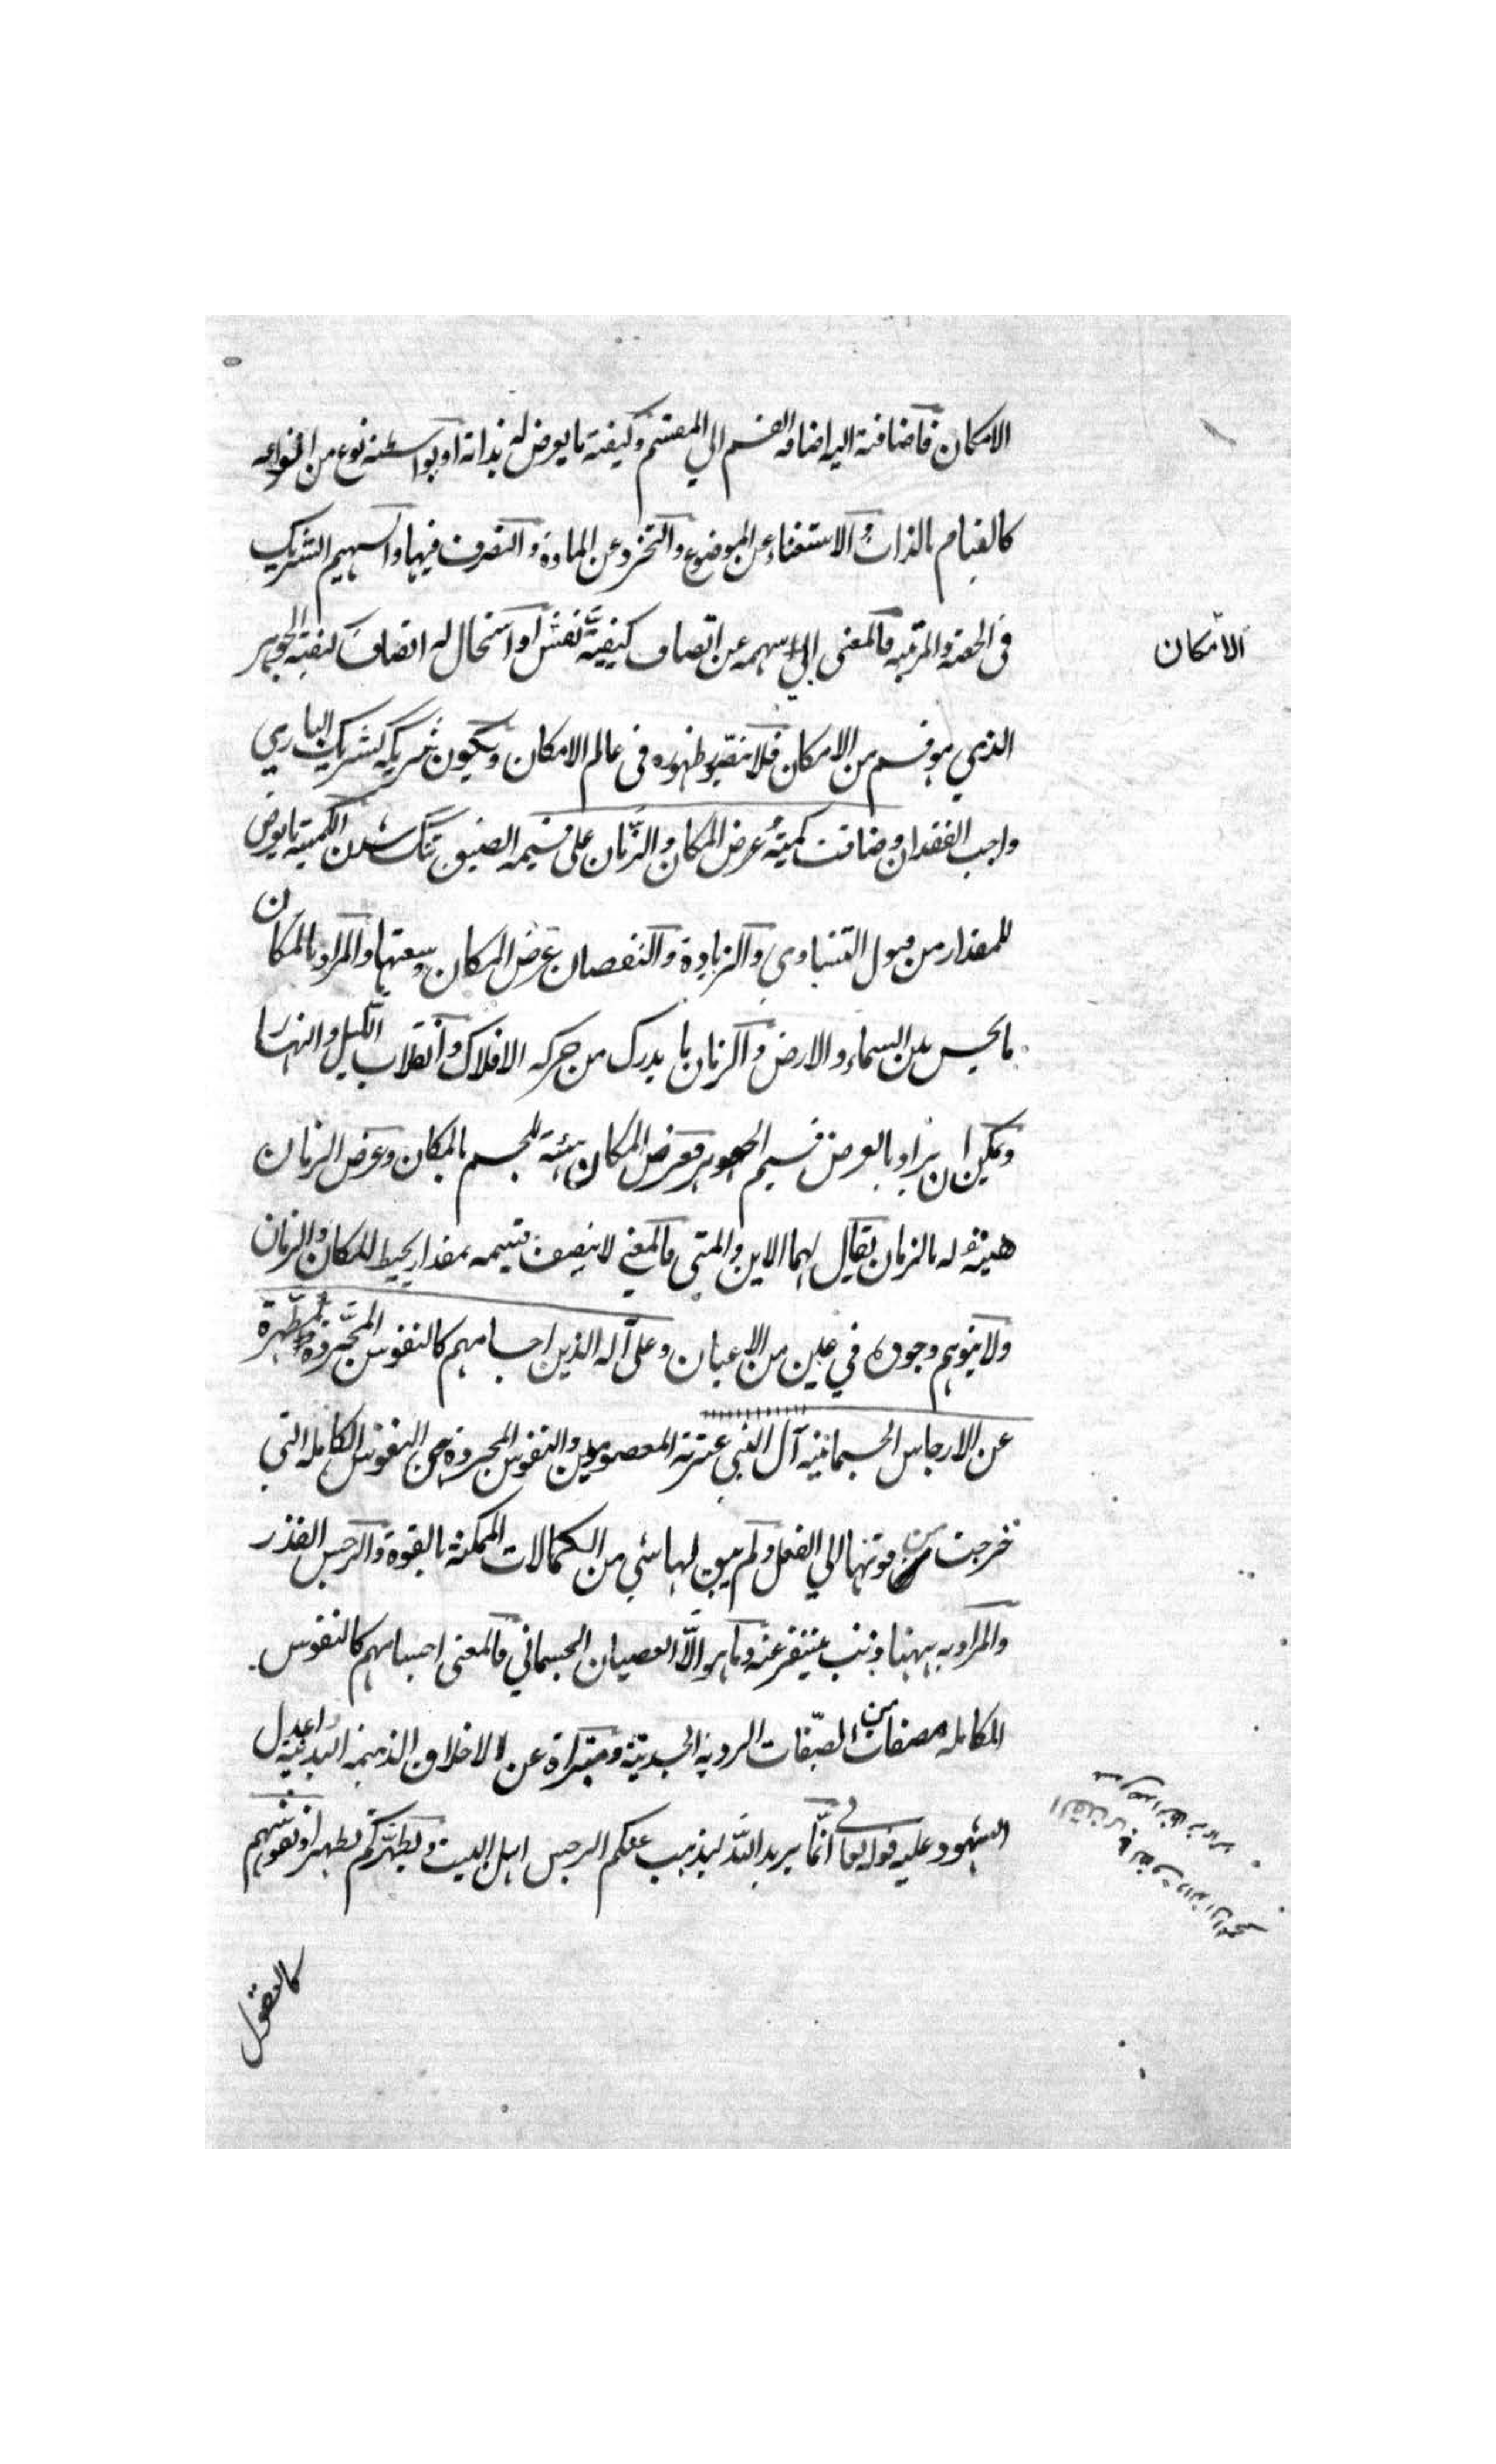 الامكان فاضافته اليه اضافه القسم الي المقسم وكيفته ما يعرض له بذاته او بواسطته نوع من انواعه
كالقيام بالذات والاستغناء عن الموضوع والتجرد عن المادة والتصرف فيها والسهيم الشريك
في الحصة والمرتبه فالمعنى سهمه عن اتصاف كيفيته نفسٌ او استحال له اتصاف كيفيته الجوهر
الامكان
الذي هو قسم من الامكان فلا يتصور ظهوره في عالم الامكان ويكون شريكه كشريك الباري
واجب الفقدان وضاقت كميته عرض المكان والزمان على قسيمه الضيق تنگ شدن الكميته ما يعرض
للمقدار من قبول التساوي والزيادة والنقصان عرض المكان وسعتها والمراد بالمكان
ما يحس بين السماء والارض والزمان ما يدرك من حركه الافلاك وانقلاب الليل والنهار
ويمكن ان يراد بالعرض قسيم الجوهر فعرض المكان هيئة للجسم بالمكان وعرض الزمان
هيئة له بالزمان يقال لهما الاين والمتى فالمعني لا يتصف قسيمه بمقدار يحيط المكان والزمان
ولا يتوهم وجوده في عين من الاعيان وعلى آله الذين اجسامهم كالنفوس المجردة مطهرة
عن الارجاس الجسمانيه آل النبي عترته المعصومين والنفوس المجردة هي النفوس الكامله التي
خرجت من قوتها الي الفعل ولم يبق لها شي من الكمالات الممكنة بالقوة والرجس القذر
والمراد به ههنا ذنب يتنفر عنه وما هو الّا العصيان الجسماني فالمعنى اجسامهم كالنفوس
الكامله مصفات من الصّفات الرديه الجسديته ومبتراة عن الاخلاق الذميمه البدنيه واعدل
الشهود عليه قوله تعالى انّما يريد اللّه ليذهب عنكم الرجس اهل البيت ويطهّركم تطهيرا ونفوسهم
كالعقول